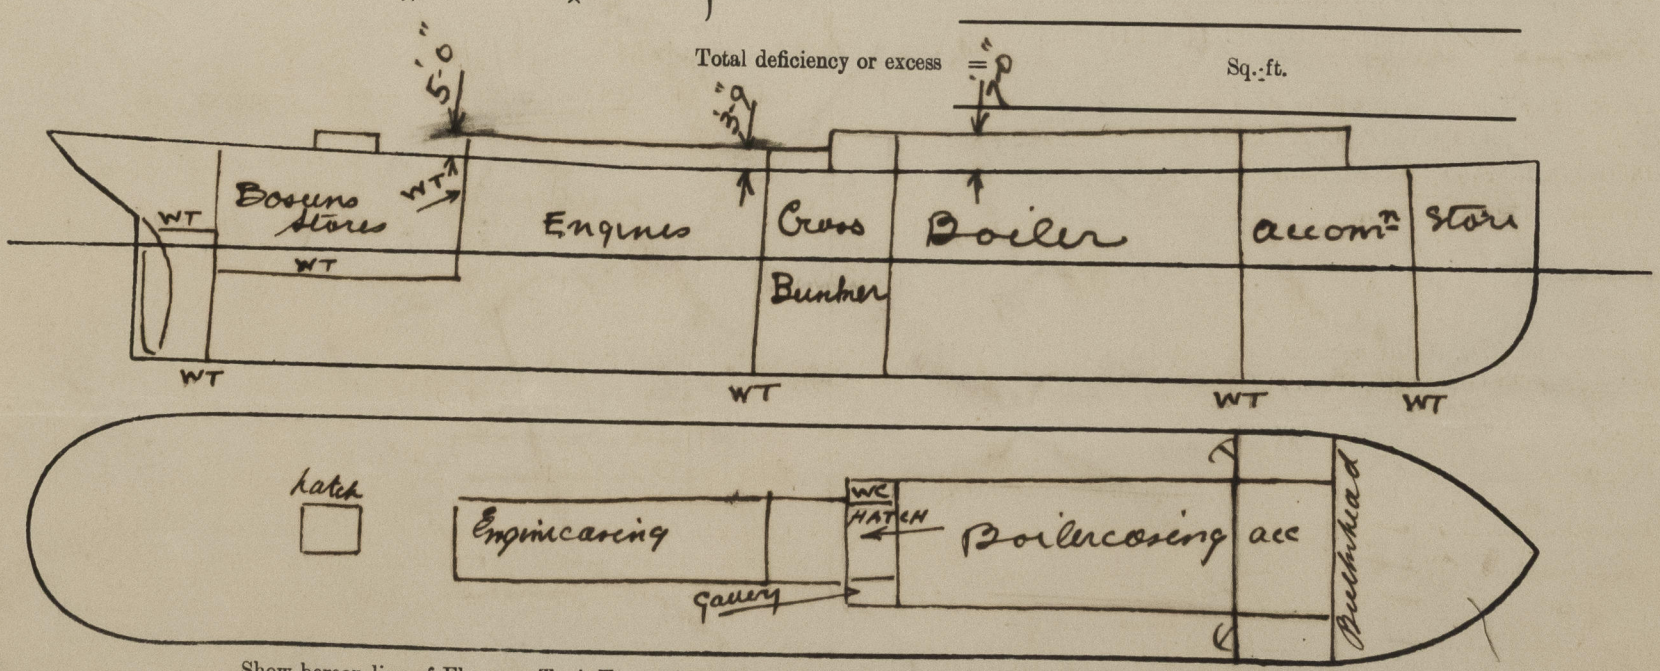 Total deficiency or excess =
Sq. ft.
5'-0"
3'-9"
WT
WT
Bosuns
Stores
WT
Engines
Cross
Bunker
Boiler
accomⁿ
Store
WT
WT
WT
WT
hatch
Enginecasing
WC
HATCH
Boilercasing
acc
Bulkhead
Galley